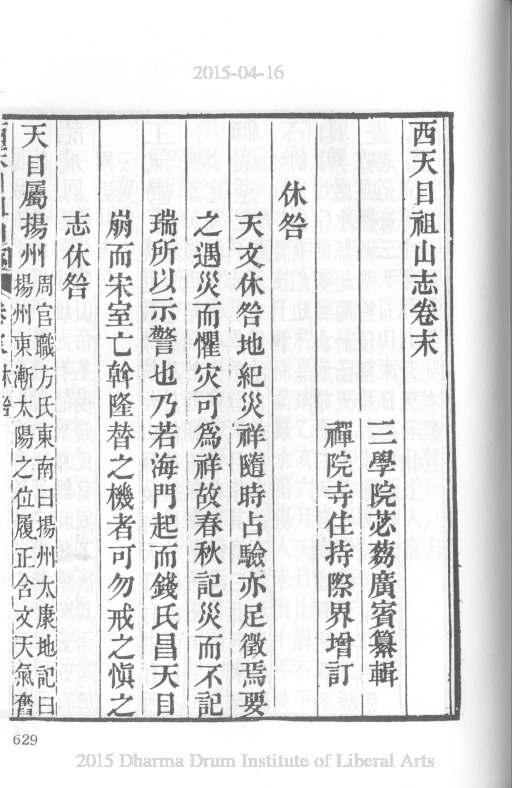 2015-04-16
西天目祖山志卷末
三學院苾蒭廣賓纂輯
禪院寺住持際界增訂
休咎
天文休咎地紀災祥隨時占驗亦足徵焉要
之遇災而懼灾可為祥故春秋記災而不記
瑞所以示警也乃若海門起而錢氏昌天目
崩而宋室亡斡隆替之機者可勿戒之愼之
志休咎
天目屬揚州
周官職方氏東南曰揚州太康地記曰
揚州東漸太陽之位履正含文天氣奮
629
2015 Dharma Drum Institute of Liberal Arts